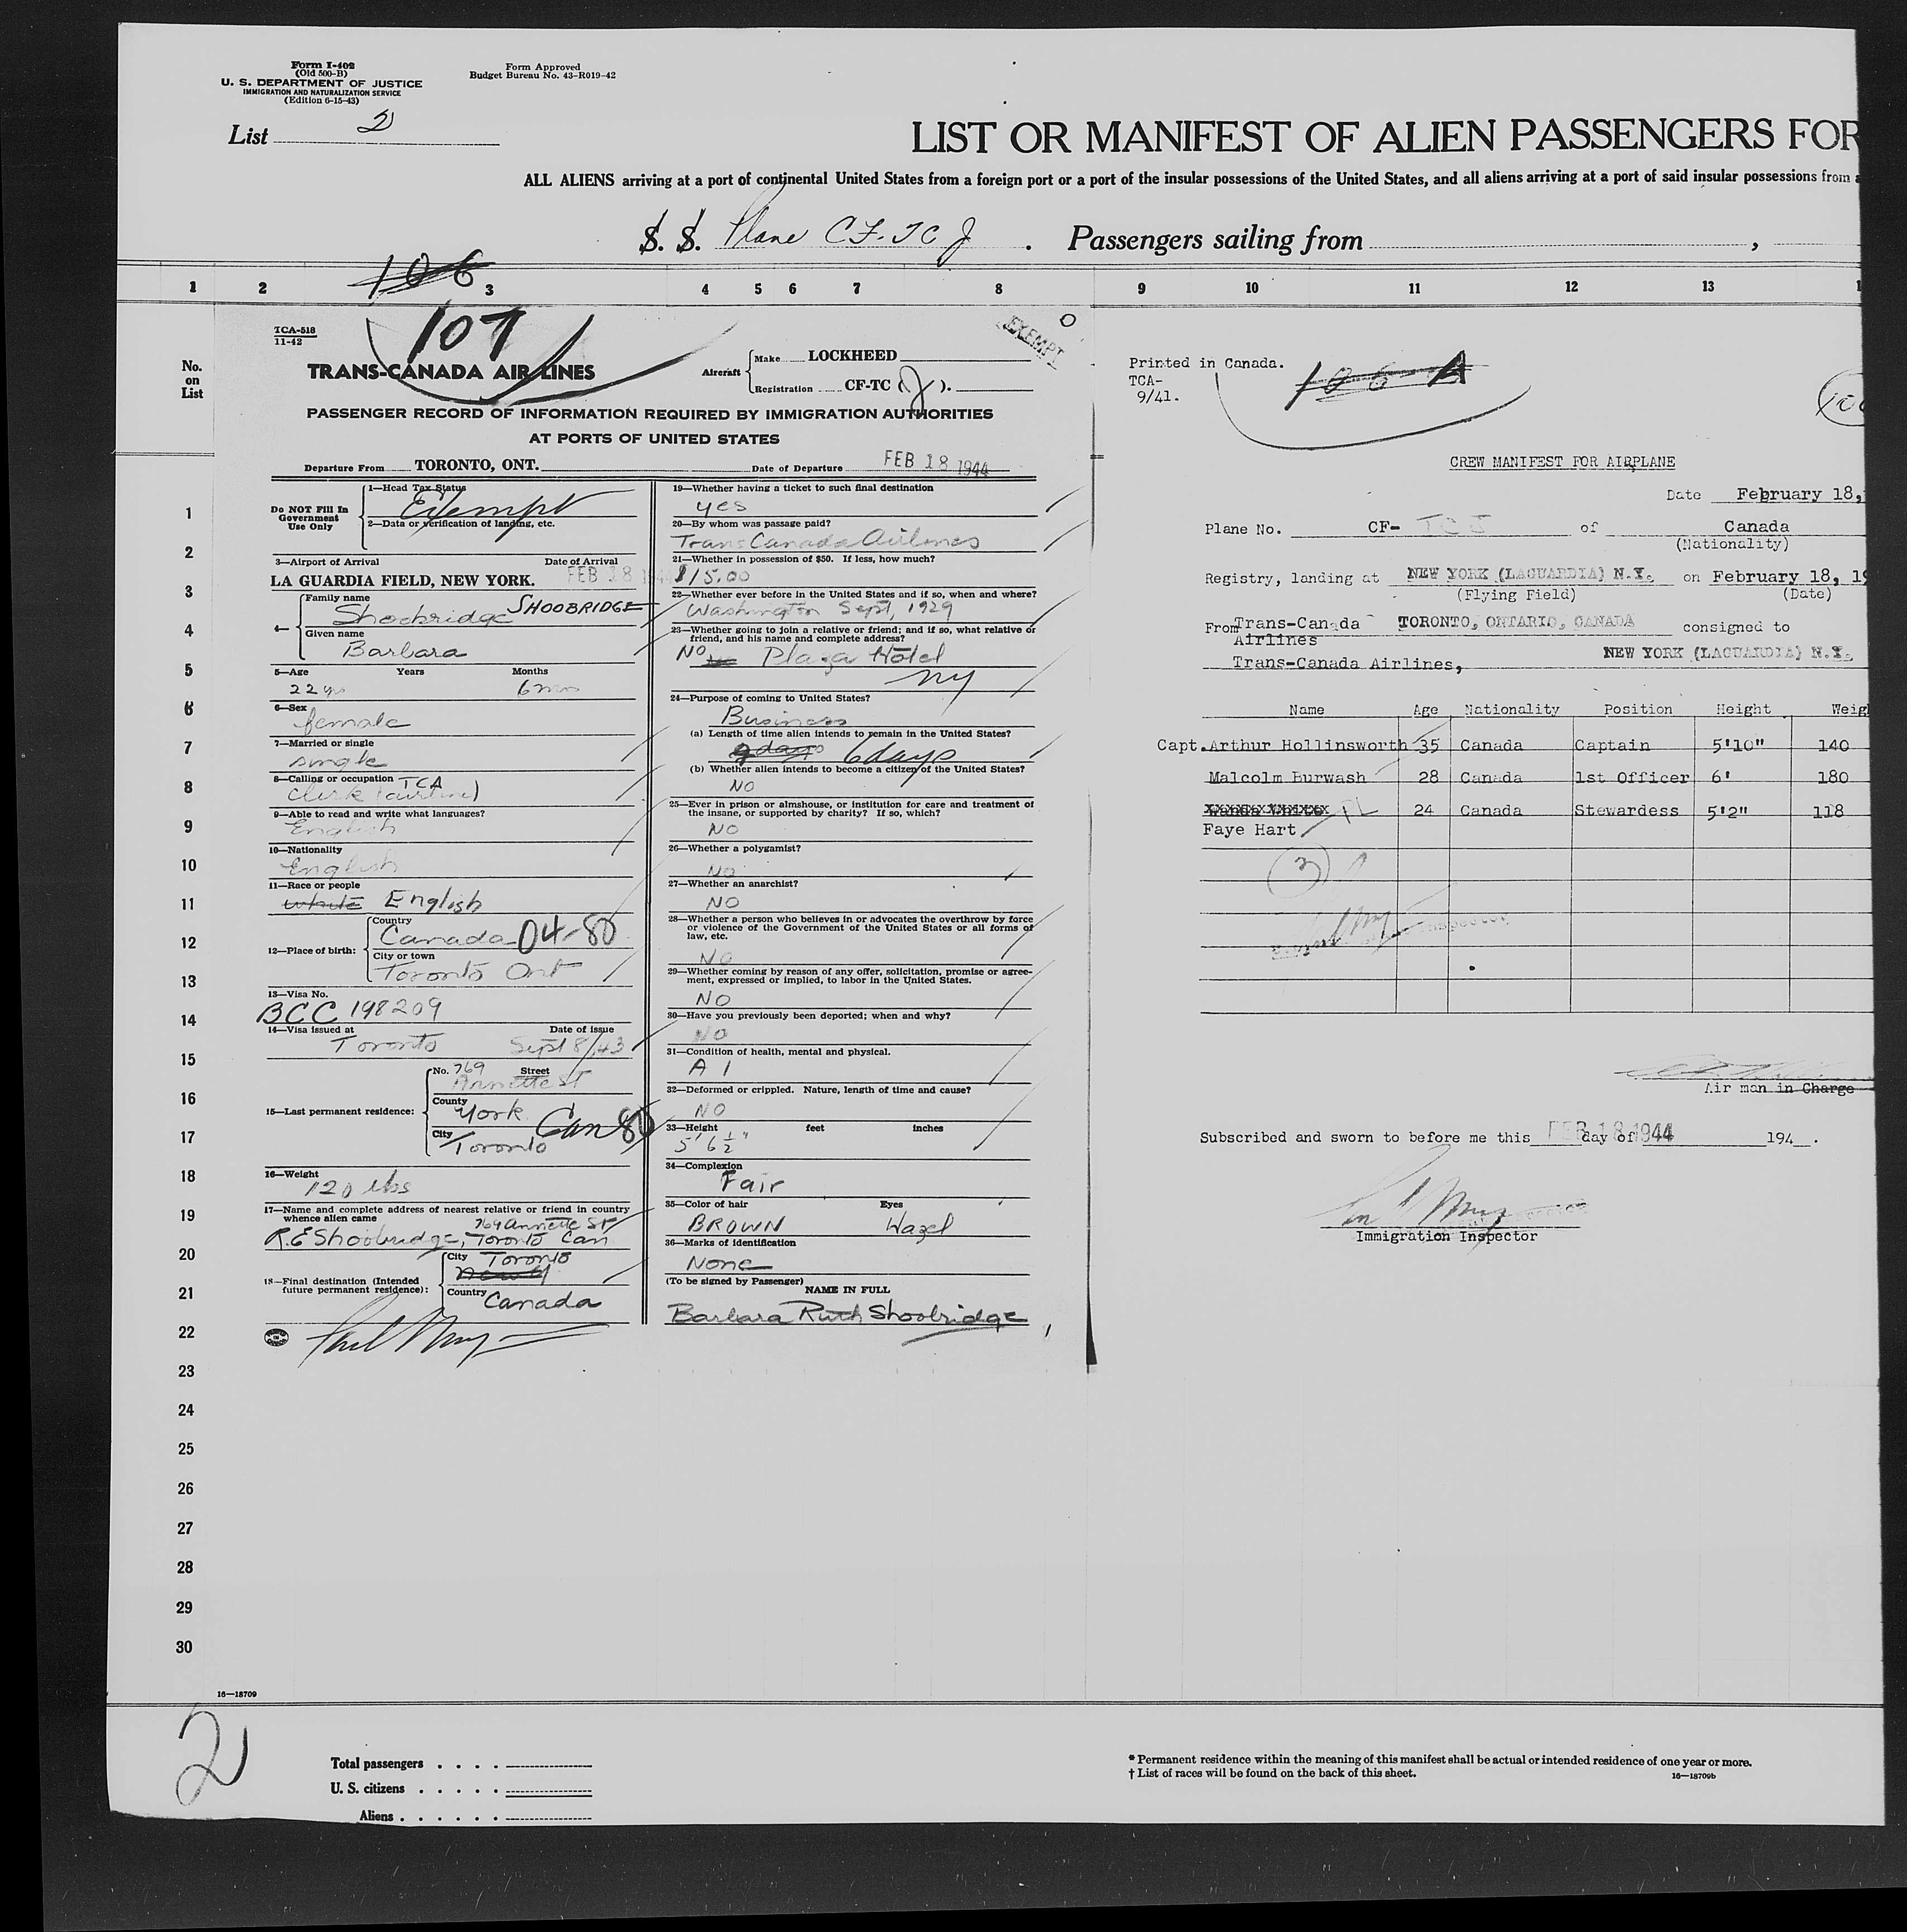 Form I-402
(Old 500-B)
U. S. DEPARTMENT OF JUSTICE
IMMIGRATION AND NATURALIZATION SERVICE
(Edition 6-15-43)
Form Approved
Budget Bureau No. 43-R019-42
List 2
LIST OR MANIFEST OF ALIEN PASSENGERS FOR
ALL ALIENS arriving at a port of continental United States from a foreign port or a port of the insular possessions of the United States, and all aliens arriving at a port of said insular possessions from a
S. S. Plane CF-TCJ . Passengers sailing from ,
1 2 3 4 5 6 7 8 9 10 11 12 13
106
107
No. on List
TCA-518
11-42
TRANS-CANADA AIR LINES
Aircraft
Make LOCKHEED
Registration CF-TC (J).
EXEMPT
PASSENGER RECORD OF INFORMATION REQUIRED BY IMMIGRATION AUTHORITIES
AT PORTS OF UNITED STATES
Departure From TORONTO, ONT. Date of Departure FEB 18 1944
Do NOT Fill In Government Use Only
1—Head Tax Status
Exempt
2—Data or verification of landing, etc.
3—Airport of Arrival Date of Arrival
LA GUARDIA FIELD, NEW YORK. FEB 18 1944
4—
Family name
Shoobridge SHOOBRIDGE
Given name
Barbara
5—Age Years Months
22 yrs 6 mos
6—Sex
female
7—Married or single
single
8—Calling or occupation TCA
Clerk (airline)
9—Able to read and write what languages?
English
10—Nationality
English
11—Race or people
white English
12—Place of birth:
Country
Canada 04-80
City or town
Toronto Ont
13—Visa No.
BCC 198209
14—Visa issued at Date of issue
Toronto Sept 8/43
15—Last permanent residence:
No. 769 Street
Annette St
County
York Can 80
City
Toronto
16—Weight
120 lbs
17—Name and complete address of nearest relative or friend in country
whence alien came
769 Annette St
R.E Shoobridge, Toronto Can
18—Final destination (Intended
future permanent residence):
City Toronto
Country Canada
19—Whether having a ticket to such final destination
yes
20—By whom was passage paid?
Trans Canada Airlines
21—Whether in possession of $50. If less, how much?
$15.00
22—Whether ever before in the United States and if so, when and where?
Washington Sept, 1929
23—Whether going to join a relative or friend; and if so, what relative or
friend, and his name and complete address?
No Plaza Hotel
NY
24—Purpose of coming to United States?
Business
(a) Length of time alien intends to remain in the United States?
6 days
(b) Whether alien intends to become a citizen of the United States?
NO
25—Ever in prison or almshouse, or institution for care and treatment of
the insane, or supported by charity? If so, which?
NO
26—Whether a polygamist?
NO
27—Whether an anarchist?
NO
28—Whether a person who believes in or advocates the overthrow by force
or violence of the Government of the United States or all forms of
law, etc.
NO
29—Whether coming by reason of any offer, solicitation, promise or agree-
ment, expressed or implied, to labor in the United States.
NO
30—Have you previously been deported; when and why?
NO
31—Condition of health, mental and physical.
A 1
32—Deformed or crippled. Nature, length of time and cause?
NO
33—Height feet inches
5' 6½"
34—Complexion
Fair
35—Color of hair Eyes
BROWN Hazel
36—Marks of identification
None
(To be signed by Passenger)
NAME IN FULL
Barbara Ruth Shoobridge
Printed in Canada.
TCA-
9/41.
106 A
CREW MANIFEST FOR AIRPLANE
Date February 18,
Plane No. CF- TCJ of Canada
(Nationality)
Registry, landing at NEW YORK (LAGUARDIA) N.Y. on February 18, 19
(Flying Field) (Date)
From Trans-Canada Airlines TORONTO, ONTARIO, CANADA consigned to
Trans-Canada Airlines, NEW YORK (LAGUARDIA) N.Y.
Name Age Nationality Position Height Weig
Capt. Arthur Hollinsworth 35 Canada Captain 5'10" 140
Malcolm Burwash 28 Canada 1st Officer 6' 180
24 Canada Stewardess 5'2" 118
Faye Hart
3
Air man in Charge
Subscribed and sworn to before me this FEB 18 1944 day of 194 .
Immigration Inspector
1
2
3
4
5
6
7
8
9
10
11
12
13
14
15
16
17
18
19
20
21
22
23
24
25
26
27
28
29
30
16—18709
2
Total passengers
U. S. citizens
Aliens
* Permanent residence within the meaning of this manifest shall be actual or intended residence of one year or more.
† List of races will be found on the back of this sheet.
16—18709b